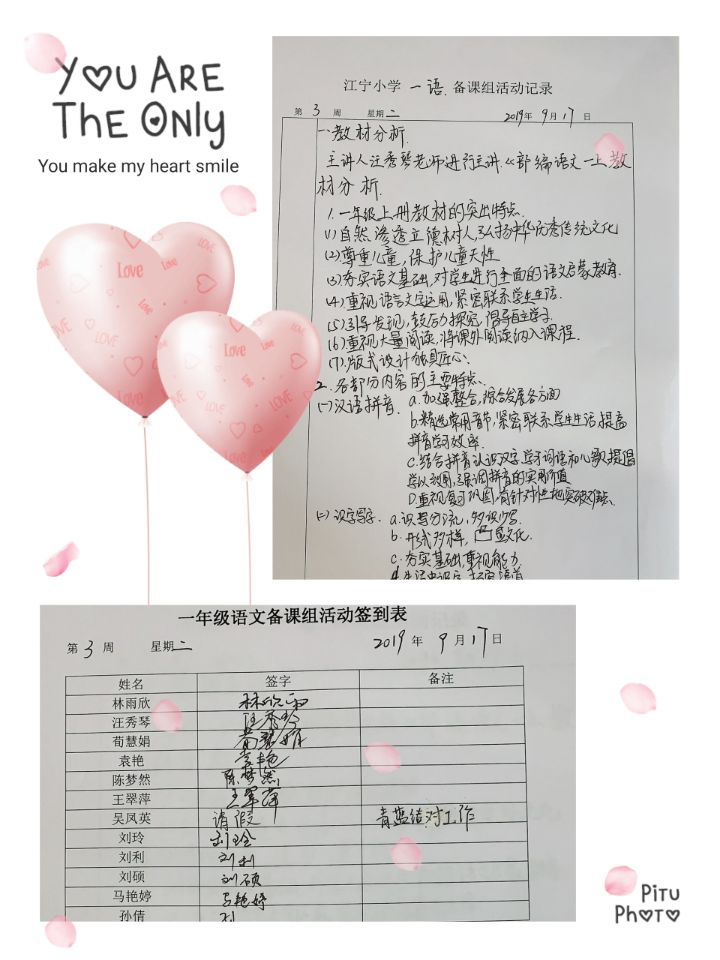 YOU ARE
THE ONLY
You make my heart smile
江宁小学 一语 备课组活动记录
第 3 周 星期二 2019年 9月 17日
一、教材分析.
主讲人汪秀琴老师进行主讲《部编语文一上教
材分析.
1. 一年级上册教材的突出特点.
(1)自然渗透立德树人,弘扬中华优秀传统文化
(2)尊重儿童,保护儿童天性
(3)夯实语文基础,对学生进行全面的语文启蒙教育.
(4)重视语言文字运用,紧密联系学生生活.
(5)引导发现,鼓励探究,倡导自主学习
(6)重视大量阅读,将课外阅读纳入课程.
(7).版式设计独具匠心.
2. 各部分内容的主要特点.
(一)汉语拼音. a.加强整合,综合发展各方面
b.精选常用音节,紧密联系学生生活 提高
拼音学习效率.
c.结合拼音认识汉字,学习词语和儿歌,提倡
学以致用,强调拼音的实用价值
D.重视复习巩固,有针对性地突破难点.
(二)识字写字. a.识写分流,多认少写.
b.形式多样, 凸显文化.
c.夯实基础,重视能力.
一年级语文备课组活动签到表
第 3 周 星期二 2019年 9月17日
姓名 签字 备注
林雨欣 林雨欣
汪秀琴 汪秀琴
荀慧娟 荀慧娟
袁艳 袁艳
陈梦然 陈梦然
王翠萍 王翠萍
吴凤英 请假 青蓝结对工作
刘玲 刘玲
刘利 刘利
刘硕 刘硕
马艳婷 马艳婷
孙倩
PiTU
PHOTO